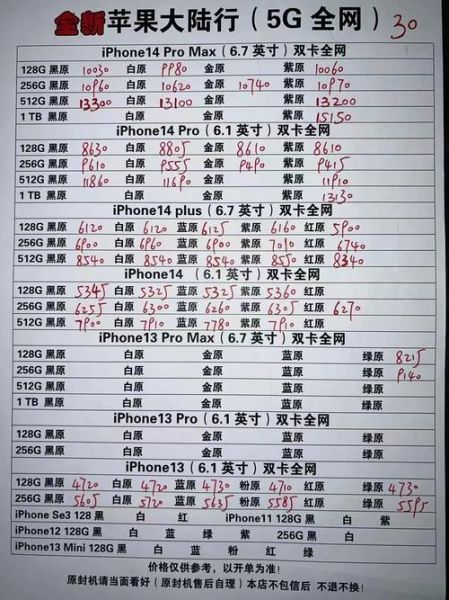 全新苹果大陆行（5G 全网）30
iPhone14 Pro Max（6.7 英寸）双卡全网
128G 黑原 10030 白原 9980 金原 紫原 10060
256G 黑原 10960 白原 10620 金原 10740 紫原 10970
512G 黑原 13300 白原 13100 金原 紫原 13200
1 TB 黑原 白原 金原 紫原 15150
iPhone14 Pro（6.1 英寸）双卡全网
128G 黑原 8630 白原 8805 金原 8610 紫原 8610
256G 黑原 9610 白原 9555 金原 9490 紫原 9415
512G 黑原 11860 白原 11690 金原 紫原 11910
1 TB 黑原 白原 金原 紫原 13130
iPhone14 plus（6.7 英寸）双卡全网
128G 黑原 6120 白原 6120 蓝原 6125 紫原 6160 红原 5900
256G 黑原 6900 白原 6960 蓝原 6900 紫原 7010 红原 6740
512G 黑原 8540 白原 8540 蓝原 8540 紫原 8550 红原 8340
iPhone14 （6.1 英寸）双卡全网
128G 黑原 5345 白原 5325 蓝原 5325 紫原 5360 红原
256G 黑原 6255 白原 6300 蓝原 6260 紫原 6305 红原 6270
512G 黑原 7900 白原 7910 蓝原 7780 紫原 7910 红原
iPhone13 Pro Max（6.7 英寸）双卡全网
128G 黑原 白原 金原 蓝原 绿原 8215
256G 黑原 白原 金原 蓝原 绿原 9140
512G 黑原 白原 金原 蓝原 绿原
1 TB 黑原 白原 金原 蓝原 绿原
iPhone13 Pro（6.1 英寸）双卡全网
128G 黑原 白原 金原 蓝原 绿原
256G 黑原 白原 金原 蓝原 绿原
iPhone13（6.1 英寸）双卡全网
128G 黑原 4720 白原 4720 蓝原 4730 粉原 4710 红原 4710 绿原 4730
256G 黑原 5605 白原 5720 蓝原 5635 粉原 5585 红原 绿原 5595
iPhone Se3 128G 黑 白 红 iPhone11 128G 黑 白 紫
iPhone12 128G 黑 白 蓝 绿 紫 256G 黑 白
iPhone13 Mini 128G 黑 白 蓝 粉 红 绿
价格仅供参考，以开单为准！
原封机请当面看好（原封机售后自理）本店不包信后 不退不换！